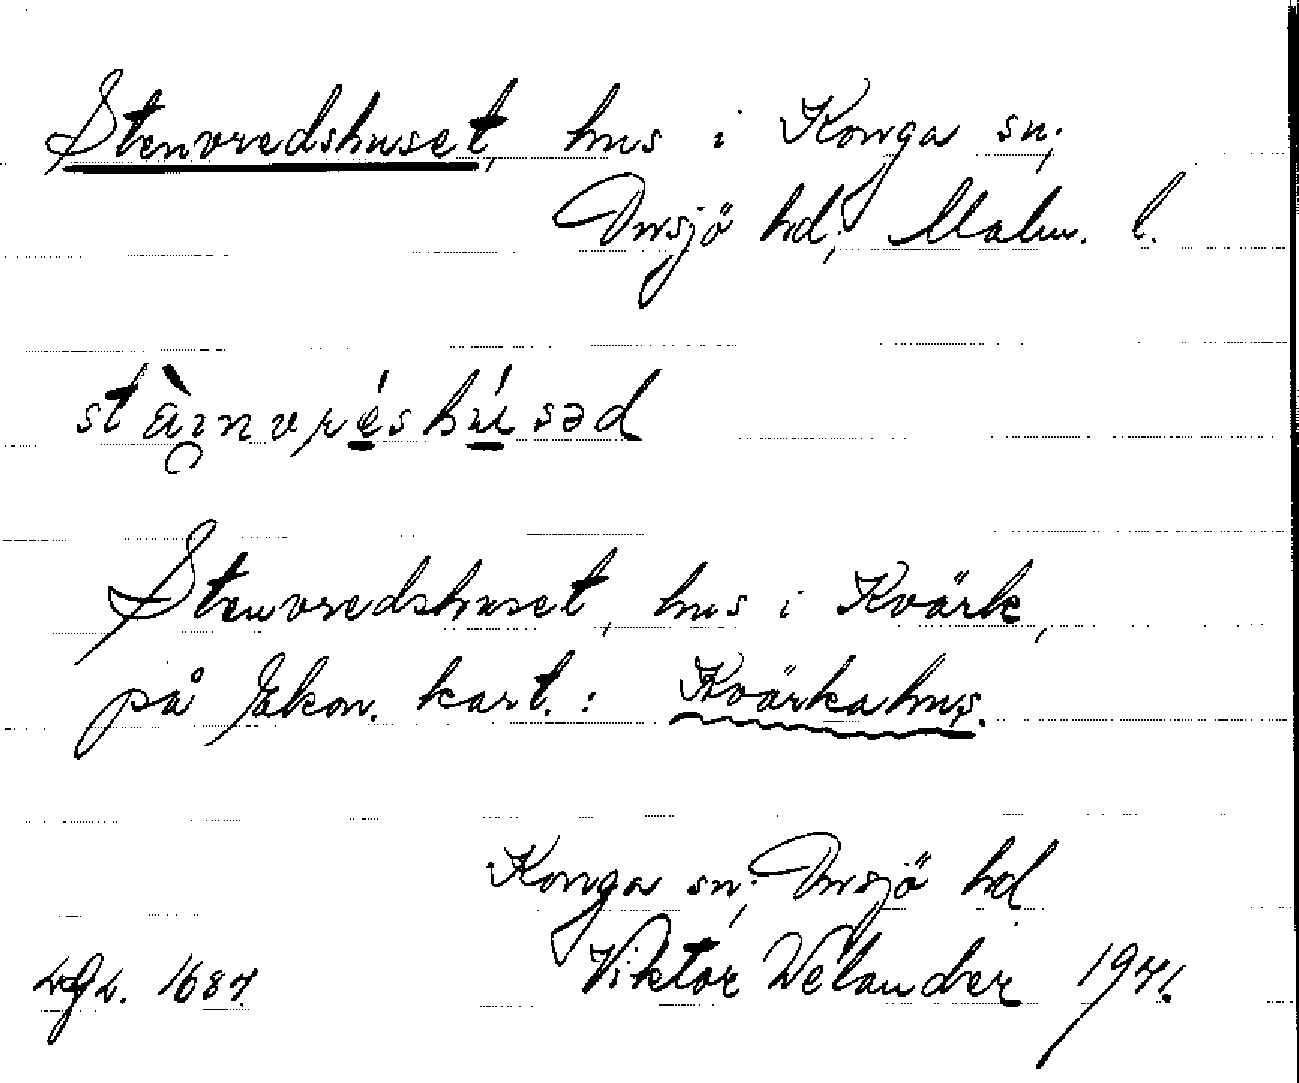 Stenvredshuset, hus i Konga sn;
Onsjö hd; Malm. l.
stài̯nvréshúsəd
Stenvredshuset, hus i Kvärk,
på Ekon. kart.: Kvärkahus.
Konga sn; Onsjö hd
LGL. 1687 Viktor Welander 1941.